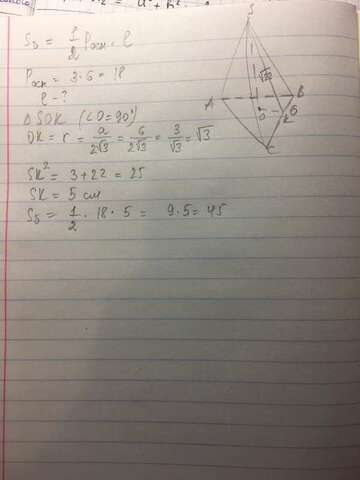 S₂ = a² + b²
Sδ = 1/2 Pосн · l
Pосн = 3 · 6 = 18
l - ?
△ SOK (∠O = 90°)
OK = r = a/2√3 = 6/2√3 = 3/√3 = √3
SK² = 3 + 22 = 25
SK = 5 см
Sδ = 1/2 · 18 · 5 = 9 · 5 = 45
S
√22
A
B
O
6
K
C